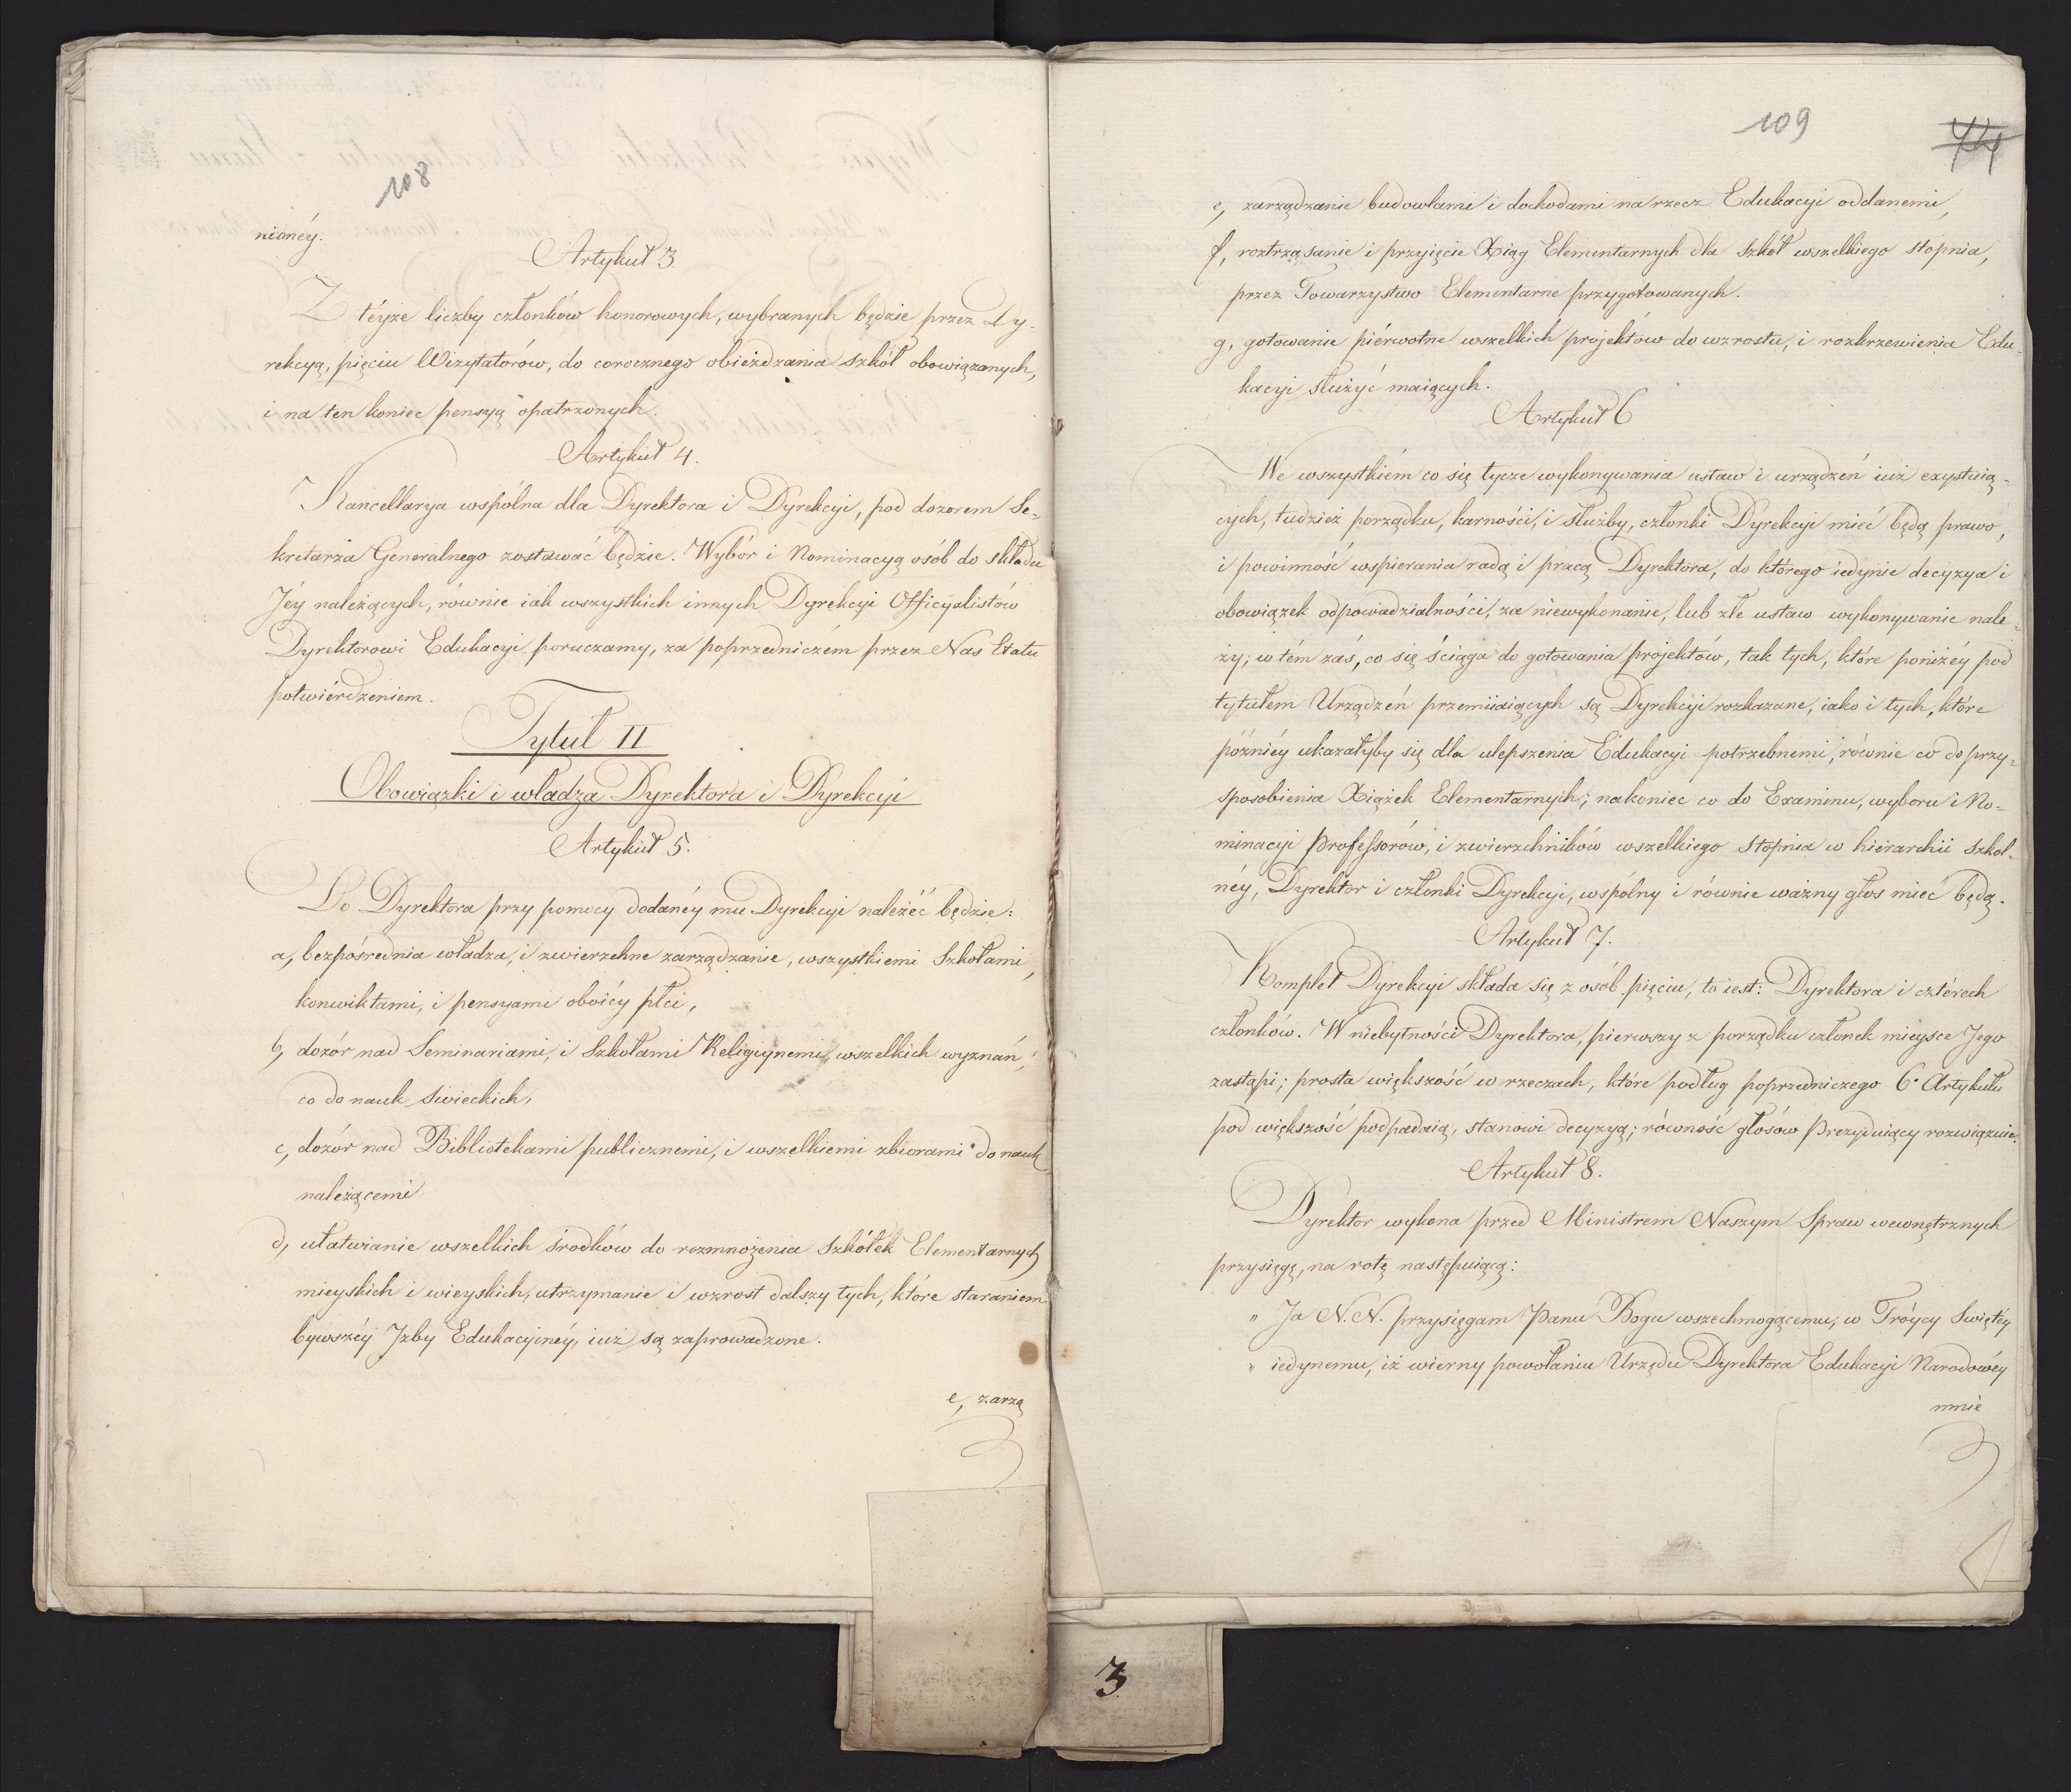 108
nionéy.
Artykuł 3.
Z téyże liczby członków honorowych, wybranych będzie przez Dy-
rekcyą, pięciu Wizytatorów, do corocznego obieżdzania szkół obowiązanych,
i na ten koniec pensyą opatrzonych.
Artykuł 4.
Kancellarya wspólna dla Dyrektora i Dyrekcyi, pod dozorem Se-
kretarza Generalnego zostawać będzie. Wybór i Nominacyą osób do składu
Jéy należących, równie iak wszystkich innych Dyrekcyi Officyalistów
Dyrektorowi Edukacyi poruczamy, za poprzedniczém przez Nas Etatu
potwiérdzeniem.
Tytuł II
Obowiązki i władza Dyrektora i Dyrekcyi
Artykuł 5.
Do Dyrektora przy pomocy dodanéy mu Dyrekcyi należéć będzie:
a, bezpośrednia władza, i zwierzchne zarządzanie, wszystkiemi Szkołami,
konwiktami, i pensyami oboiéy płci,
b, dozór nad Seminariami, i Szkołami Religiynemi, wszelkich wyznań,
co do nauk swieckich,
c, dozór nad Bibliotekami publicznemi, i wszelkiemi zbiorami do nauk
należącemi
d, ułatwianie wszelkich środków do rozmnożenia szkółek Elementarnych
mieyskich i wieyskich, utrzymanie i wzrost dalszy tych, które staraniem
bywszéy Jzby Edukacyinéy, iuż są zaprowadzone.
e, zarzą
109
74
e, zarządzanie budowlami i dochodami na rzecz Edukacyi oddanemi,
f, roztrząsanie i przyięcie Xiąg Elementarnych dla szkół wszelkiego stopnia,
przez Towarzystwo Elementarne przygotowanych.
g, gotowanie piérwotne wszelkich projektów do wzrostu, i rozkrzewienia Edu-
kacyi służyć maiących.
Artykuł 6
We wszystkiém co się tycze wykonywania ustaw i urządzeń iuż exystuią-
cych, tudzież porządku, karności, i służby, członki Dyrekcyi mieć będą prawo,
i powinność wspierania radą i pracą Dyrektora, do którego iedynie decyzya i
obowiązek odpowiedzialności, za niewykonanie, lub złe ustaw wykonywanie nale-
ży; w tém zaś, co się ściąga do gotowania projektów, tak tych, które poniżéy pod
tytułem Urządzeń przemiiaiących są Dyrekcyi rozkazane, iako i tych, które
późniéy ukazałyby się dla ulepszenia Edukacyi potrzebnemi, równie co do przy-
sposobienia Xiążek Elementarnych; nakoniec co do Examinu, wyboru i No-
minacyi Professorów, i zwierzchników wszelkiego stopnia w hierarchii szkol-
néy, Dyrektor i członki Dyrekcyi, wspólny i równie ważny głos mieć będą.
Artykuł 7.
Komplet Dyrekcyi składa się z osób pięciu, to iest: Dyrektora i cztérech
członków. W niebytności Dyrektora, pierwszy z porządku członek mieysce Jego
zastąpi; prosta większość w rzeczach, które podług poprzedniczego 6º Artykułu
pod większość podpadaią, stanowi decyzyą; równość głosów Prezyduiący rozwiązuie.
Artykuł 8.
Dyrektor wykona przed Ministrem Naszym Spraw wewnętrznych
przysięgę, na rotę następuiącą:
" Ja N. N. przysięgam Panu Bogu wszechmogącemu, w Tróycy Swiętéy
" iedynemu, iż wierny powołaniu Urzędu Dyrektora Edukacyi Narodowéy
mnie
3